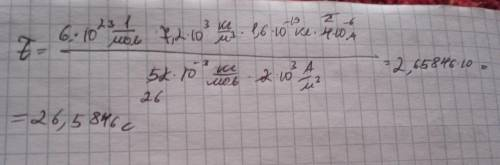 τ = (6·10²³ 1/моль · 7,2·10³ кг/м³ · 1,6·10⁻¹⁹ Кл · 2 · 4·10⁻⁶ м) / (52·10⁻³ кг/моль · 2·10³ А/м²) = 2,65846·10 =
26
= 26,5846 с